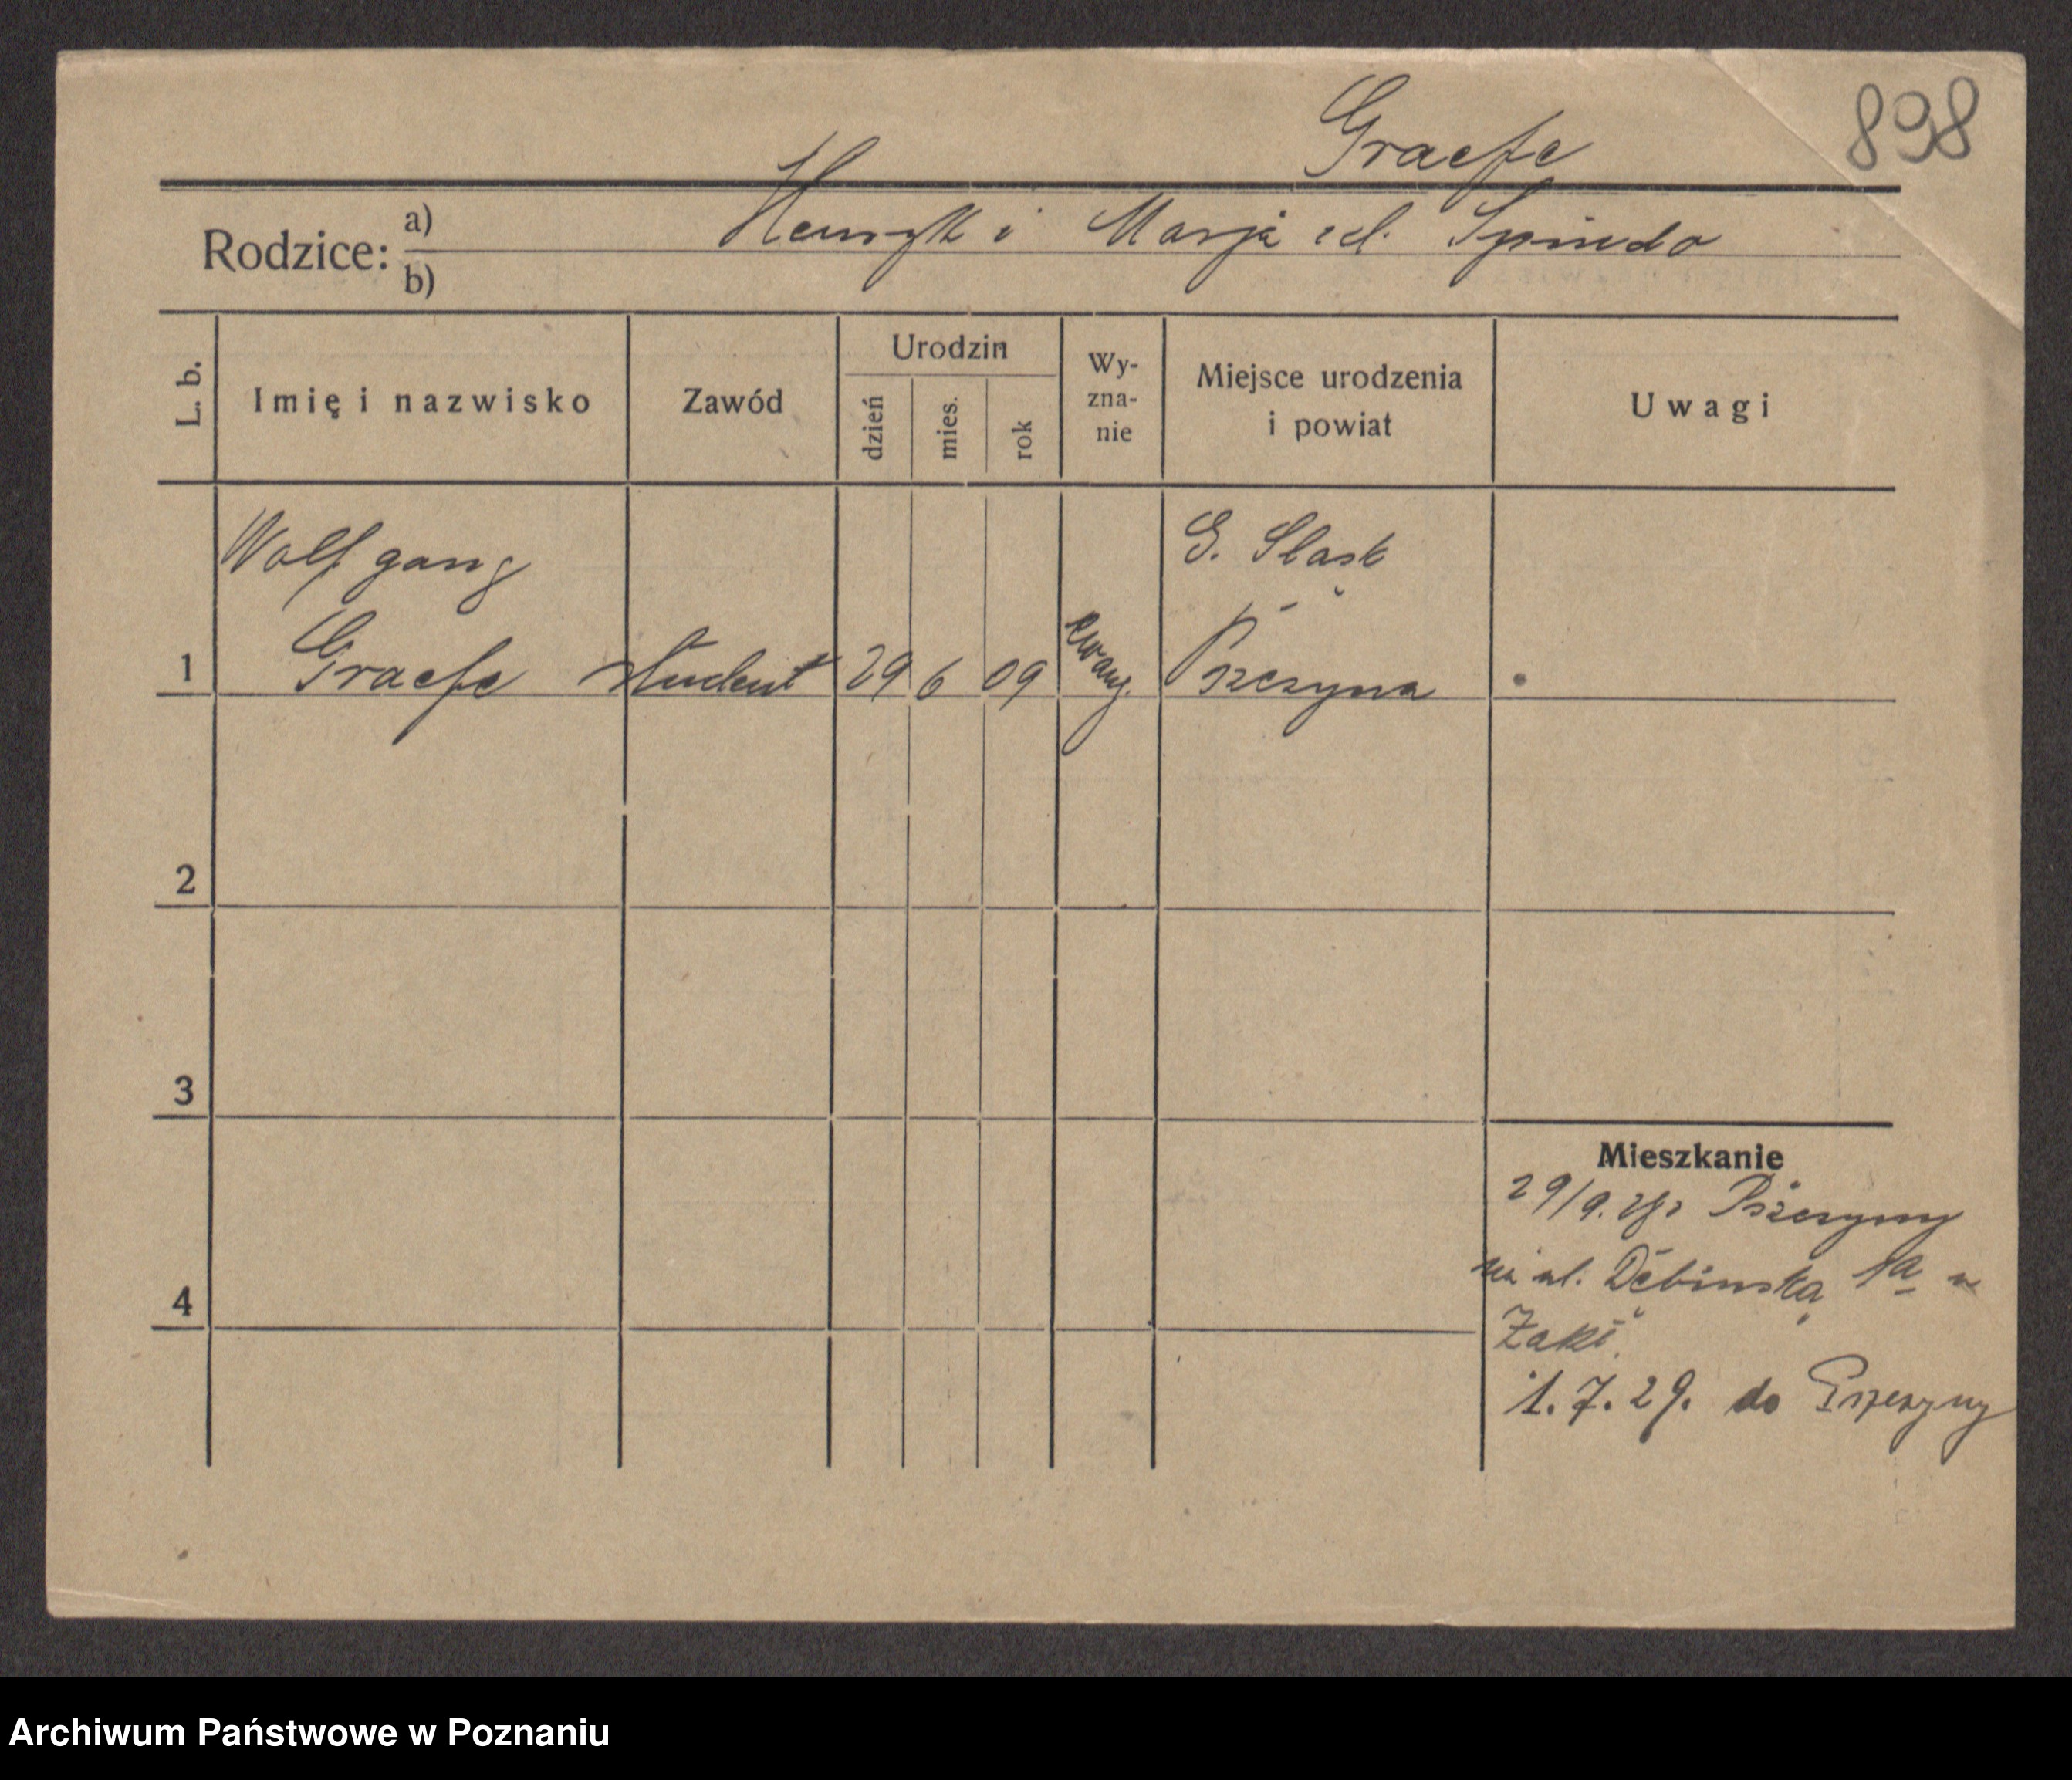 898
Graefe
Rodzice: a) Henryk i Marja zd.
b)
L. b. Imię i nazwisko Zawód Urodzin dzień mies. rok Wy-zna-nie Miejsce urodzenia i powiat Uwagi
Wolfgang G. Śląsk
1 Graefe student 29 6 09 ewang. Pszczyna
2
3
Mieszkanie
29/9. Pszczyny
na ul. Dębińską 1a u
4
Żaki
1. 7. 29. do Pszczyny
Archiwum Państwowe w Poznaniu